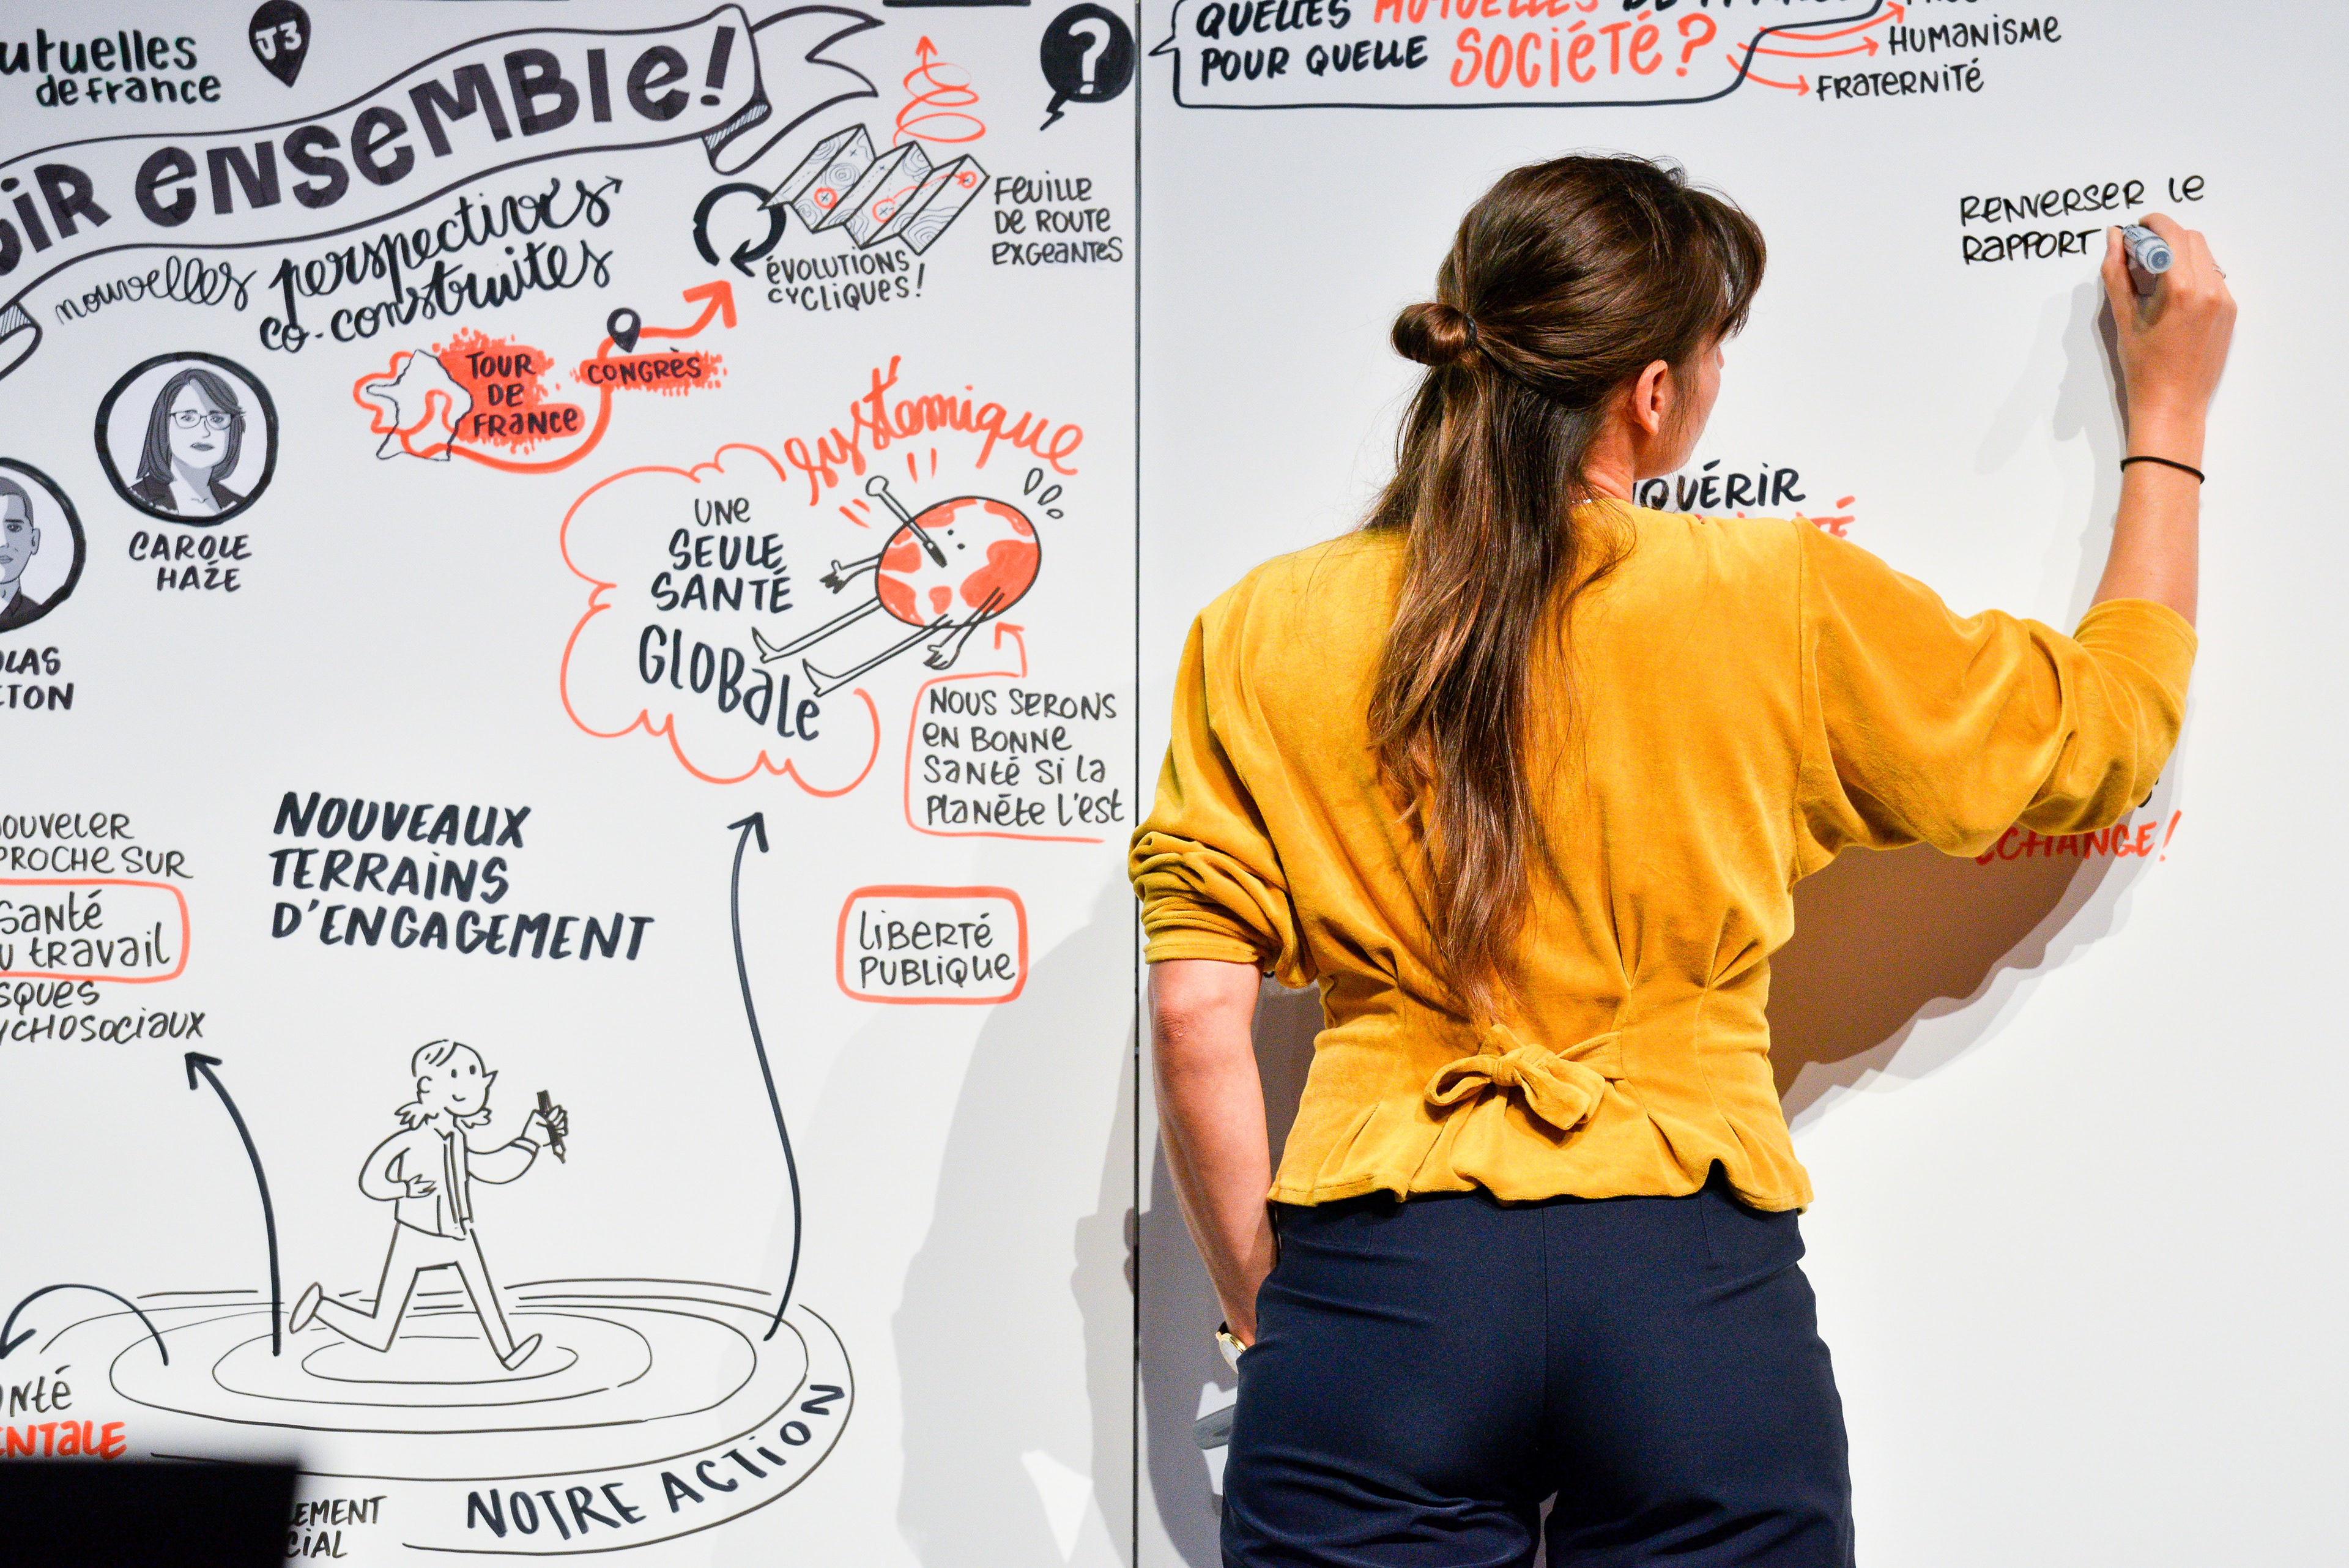 utuelles
de france
J3
ir ensemble!
nouvelles perspectives
co-construites
ÉVOLUTIONS
CYCLIQUES!
FEUILLE
DE ROUTE
EXGEANTES
?
TOUR
DE
FRANCE
CONGRÈS
CAROLE
HAZE
OLAS
ETON
systémique
UNE
SEULE
SANTÉ
GLOBALE
NOUS SERONS
EN BONNE
SANTÉ SI LA
PLANÈTE L'EST
OUVELER
PROCHE SUR
SANTÉ
U TRAVAIL
SQUES
YCHOSOCIAUX
NOUVEAUX
TERRAINS
D'ENGAGEMENT
LIBERTÉ
PUBLIQUE
NTÉ
ENTALE
EMENT
CIAL
NOTRE ACTION
QUELLES MUTUELLES DE FRANCE
POUR QUELLE SOCIÉTÉ?
HUMANISME
FRATERNITÉ
RENVERSER LE
RAPPORT
QUÉRIR
ÉCHANGE!